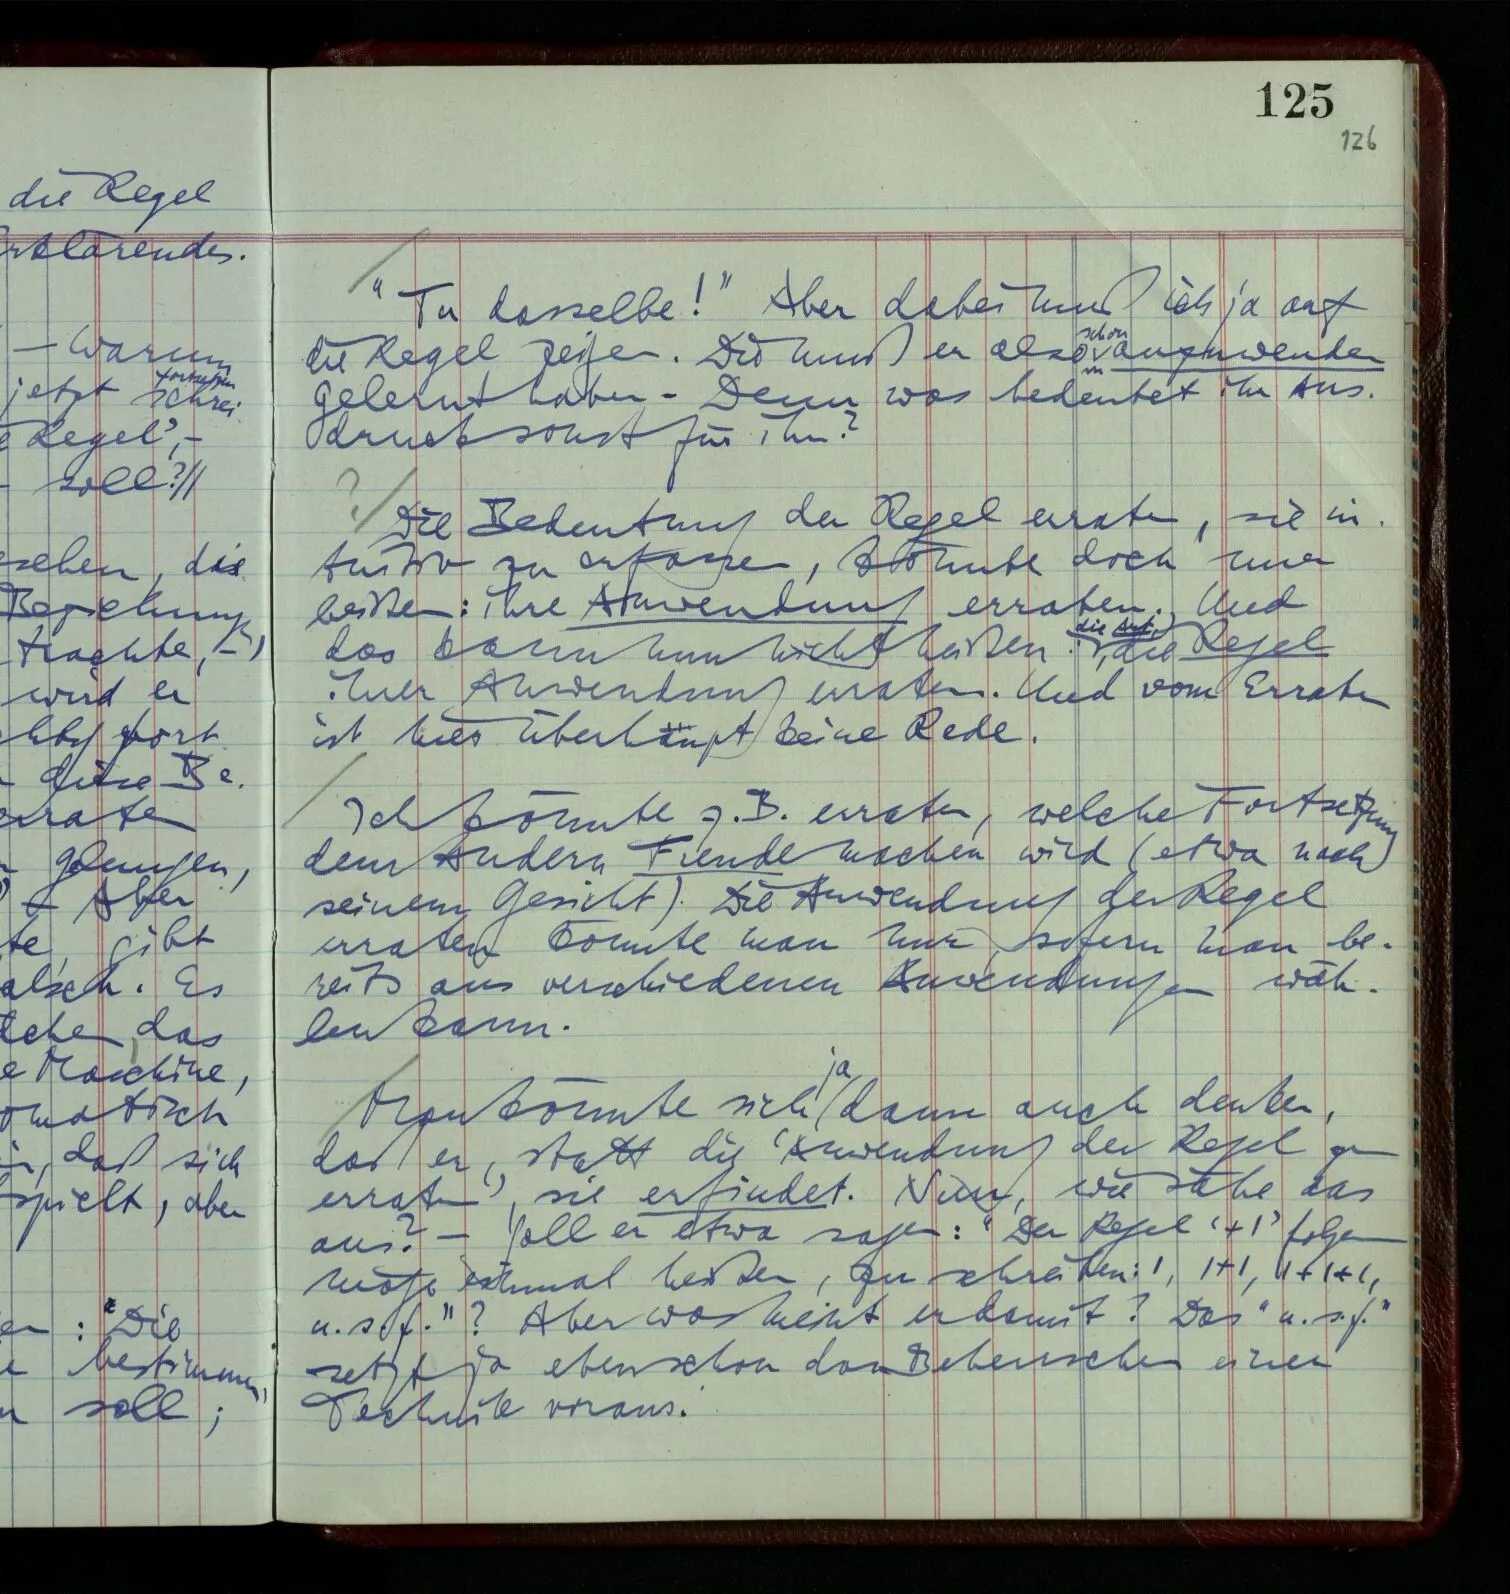 die Regel
Erklärendes.
– Warum
jetzt fortsetzen schrei
Regel', –
soll?//
sehen, die
Beziehung
trachte, –)
wird er
fort
– diese Be-
erraten
gelungen,
– Aber
gibt
falsch. Es
das
Maschine,
automatisch
daß sich
spielt, aber
: "Die
bestimmen,
soll;
125
126
"Tu dasselbe!" Aber dabei muß ich ja auf
die Regel zeigen. Die muß er also schon anzuwenden
gelernt haben. Denn was bedeutet ihr Aus-
druck sonst für ihn?
?/ Die Bedeutung der Regel erraten, sie in-
tuitiv zu erfassen, könnte doch nur
heißen: ihre Anwendung erraten. Und
das kann nun nicht heißen: die Art, die Regel
ihrer Anwendung erraten. Und vom Erraten
ist hier überhaupt keine Rede.
Ich könnte z.B. erraten, welche Fortsetzung
dem Andern Freude machen wird (etwa nach
seinem Gesicht). Die Anwendung der Regel
erraten könnte man nur, sofern man be-
reits aus verschiedenen Anwendungen wäh-
len kann.
Man könnte sich ja dann auch denken,
daß er, statt die 'Anwendung der Regel zu
erraten', sie erfindet. Nun, wie sähe das
aus? – Soll er etwa sagen: "Der Regel '+1' folgen
möge einmal heißen, zu schreiben: 1, 1+1, 1+1+1,
u.s.f."? Aber was meint er damit? Das "u.s.f."
setzt ja eben schon das Beherrschen einer
Technik voraus.